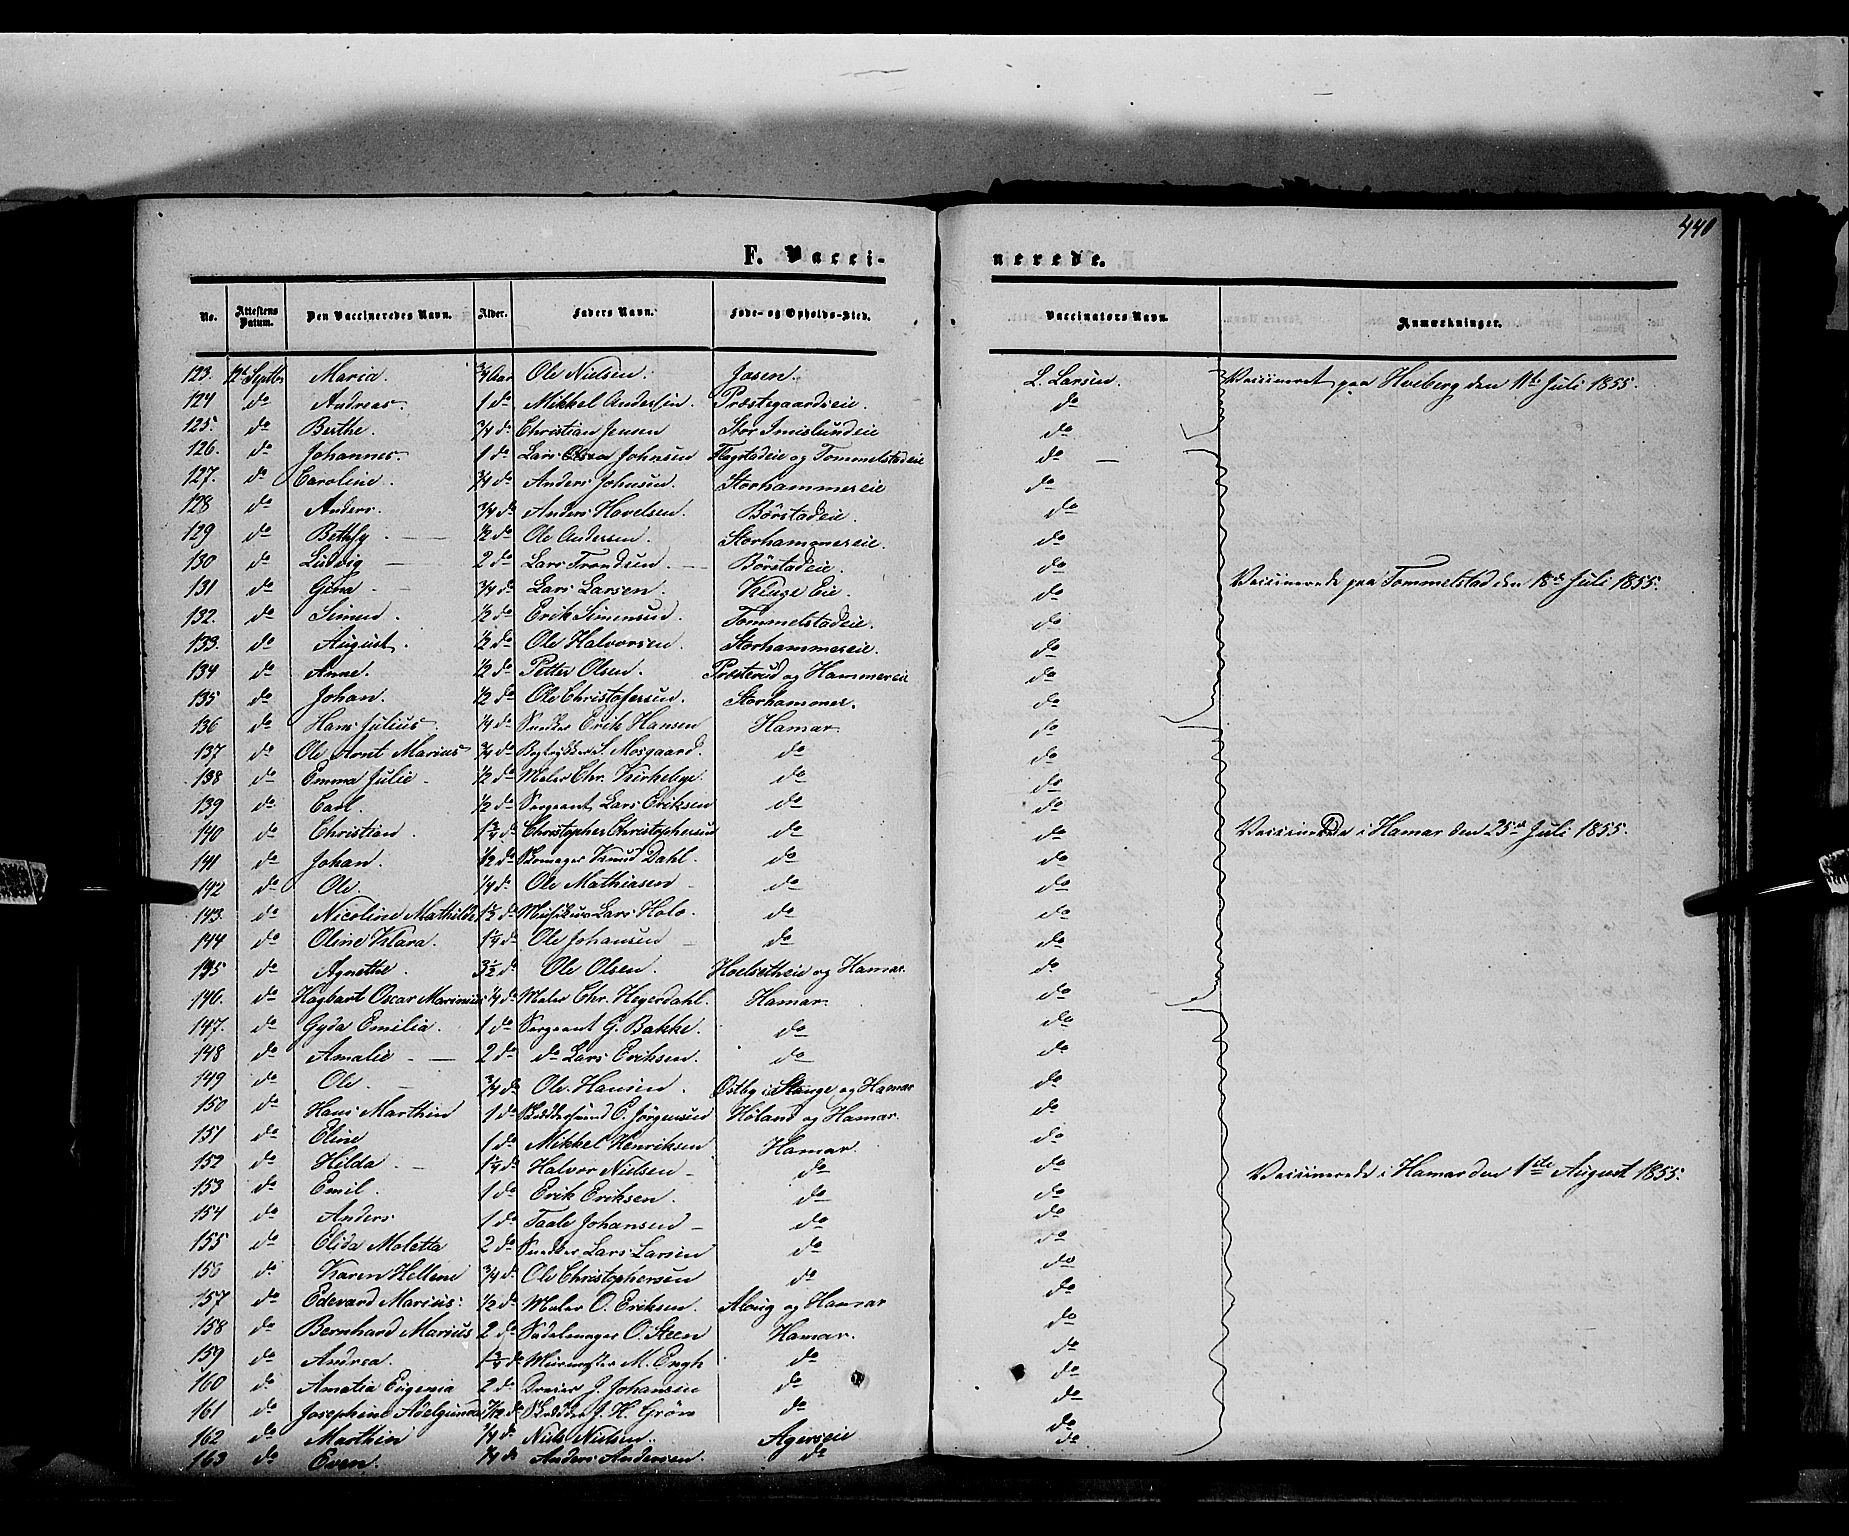 440
F. Vacci-
nerede.
No. Attestens Datum. Den Vaccineredes Navn. Alder. Faders Navn. Føde- og Opholds-Sted. Vaccinators Navn. Anmærkninger.
123. 12te Septbr Maria. 3/4 Aar Ole Nielsen. Josen. L. Larsen. Vaccineret paa Hviberg den 11te Juli 1855.
124 do Andreas. 1 do Mikkel Andersen. Præstegaardseie. do
125. do Berthe. 3/4 do Christian Jensen Stor Imislundeie do
126. do Johannes. 1 do Lars Johnsen Flagstadeie og Tommelstadeie do
127. do Caroline. 3/4 do Anders Johnsen. Storhammereie do
128 do Anders. 3/4 do Anders Hovelsen. Börstadeie. do
129 do Bethsy 1/2 do Ole Andersen. Storhammereie. do
130 do Ludvig 2 do Lars Trondsen. Börstadeie. do
131 do Gina 3/4 do Lars Larsen. Kluge Eie. do Vaccinerede paa Tommelstad den 18de Juli 1855.
132. do Simen 1/2 do Erik Simensen. Tommelstadeie. do
133. do August. 1/2 do Ole Halvorsen. Storhammereie. do
134 do Anne. 1/2 do Petter Olsen. Præsterud og Hammereie do
135 do Johan. 1/2 do Ole Christofersen. Storhammer. do
136 do Hans Julius. 1/4 do Snedker Erik Hansen Hamar. do
137 do Ole Arnt Marius 3/4 do Bogtrykker S. Mosgaard. do do
138 do Emma Julie 1/2 do Maler Chr. Kirkebye. do do
139 do Carl. 1/2 do Sergeant Lars Eriksen do do
140 do Christian. 1 3/4 do Christopher Christophersen do do Vaccinerede i Hamar den 25de Juli 1855.
141 do Johan. 1/2 do Skomager Knud Dahl. do do
142 do Ole. 1/4 do Ole Mathiasen do do
143. do Nicoline Mathilde 1 1/2 do Musikus Lars Holo. do do
144 do Oline Klara. 1 1/4 do Ole Johansen do do
145 do Agnethe. 3 1/2 do Ole Olsen. Hoelsetheie og Hamar. do
146. do Hagbart Oscar Marinius 1/4 do Maler Chr. Hegerdahl. Hamar. do
147. do Gyda Emilia. 1 do Sergeant G. Bakke. do do
148 do Amalie 2 do do Lars Eriksen. do do
149 do Ole. 3/4 do Ole Hansen. Ostby i Stange og Hamar do
150 do Hans Marthin 1 do E. Jörgensen Höland og Hamar. do
151 do Eline 1 do Mikkel Henriksen Hamar. do
152 do Hilda. 1 1/4 do Halvor Nielsen do do Vaccinerede i Hamar den 1ste August 1855.
153 do Emil. 1 do Erik Eriksen. do do
154 do Anders 1 do Taale Johansen do do
155 do Elida Moletta 2 do Snedker Lars Larsen do do
156 do Karen Hellene 3/4 do Ole Christophersen do do
157 do Edevard Marius. 1/2 do Maler O. Eriksen. og Hamar do
158 do Bernhard Marius 2 do Sadelmager O. Steen Hamar. do
159 do Andrea. 1 3/4 do Muurmester M. Engh do do
160 do Amalia Eugenia 2 do Dreier J. Johansen do do
161 do Josephine Adelgunda 7/12 do Skrædder J. H. Gröm do do
162 do Marthin 3/4 do Niels Nielsen. Agerseie do
163 do Even. 1/4 do Anders Andersen. do do